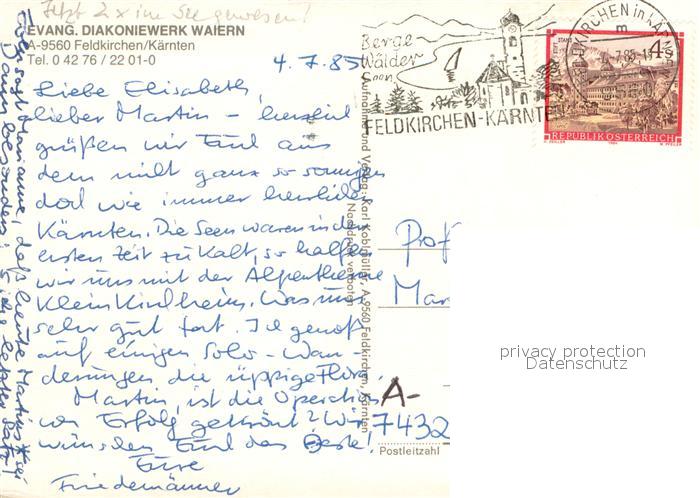 Jetzt 2x im See gewesen!
EVANG. DIAKONIEWERK WAIERN
A-9560 Feldkirchen/Kärnten
Tel. 0 42 76 / 22 01-0
4.7.85
Liebe Elisabeth,
lieber Martin – herzlich
grüßen wir Euch aus
dem nicht ganz so sonnigen
doch wie immer herrlichen
Kärnten. Die Seen waren in der
ersten Zeit zu kalt, so halfen
wir uns mit der Alpentherme
Kleinkirchheim. Was uns
sehr gut tat. Ich genoß
auf einigen Solo-Wan-
derungen die üppige Flora.
Martin, ist die Operation
von Erfolg gekrönt? Wir
wünschen Euch das Beste!
Eure
Friedemänner
Eben sagt Marianne, daß heute Martins * sei
Dann besonders letzter Satz!
Berge
Wälder
Seen
FELDKIRCHEN-KÄRNTEN
FELDKIRCHEN in KÄRNTEN
m
4 S
STIFT
REPUBLIK ÖSTERREICH
Aufnahme und Verlag: Karl Kohlmüller, A-9560 Feldkirchen, Kärnten
Nachdruck verboten
Prof
Mar
A-
7432
Postleitzahl
privacy protection
Datenschutz